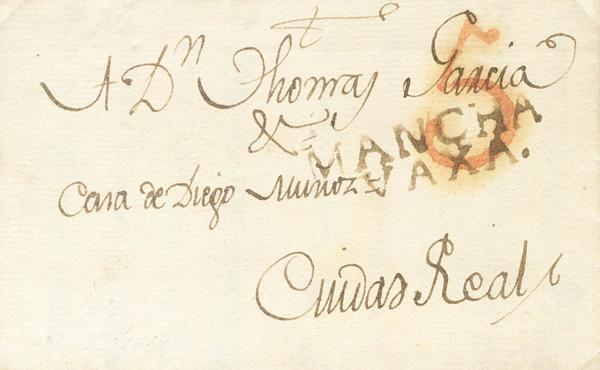 A Dn Thomas Garcia
&a
MANCHA
VAXA.
Casa de Diego Muñoz =
Ciudad Real
5